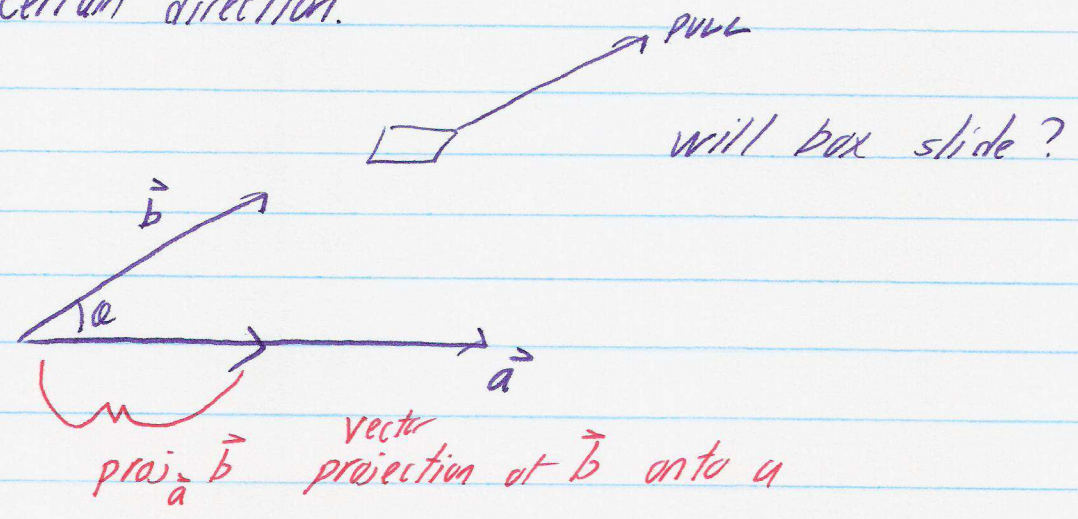 certain direction.
PULL
will box slide?
b⃗
θ
a⃗
vector
proj a⃗ b⃗ projection of b⃗ onto a